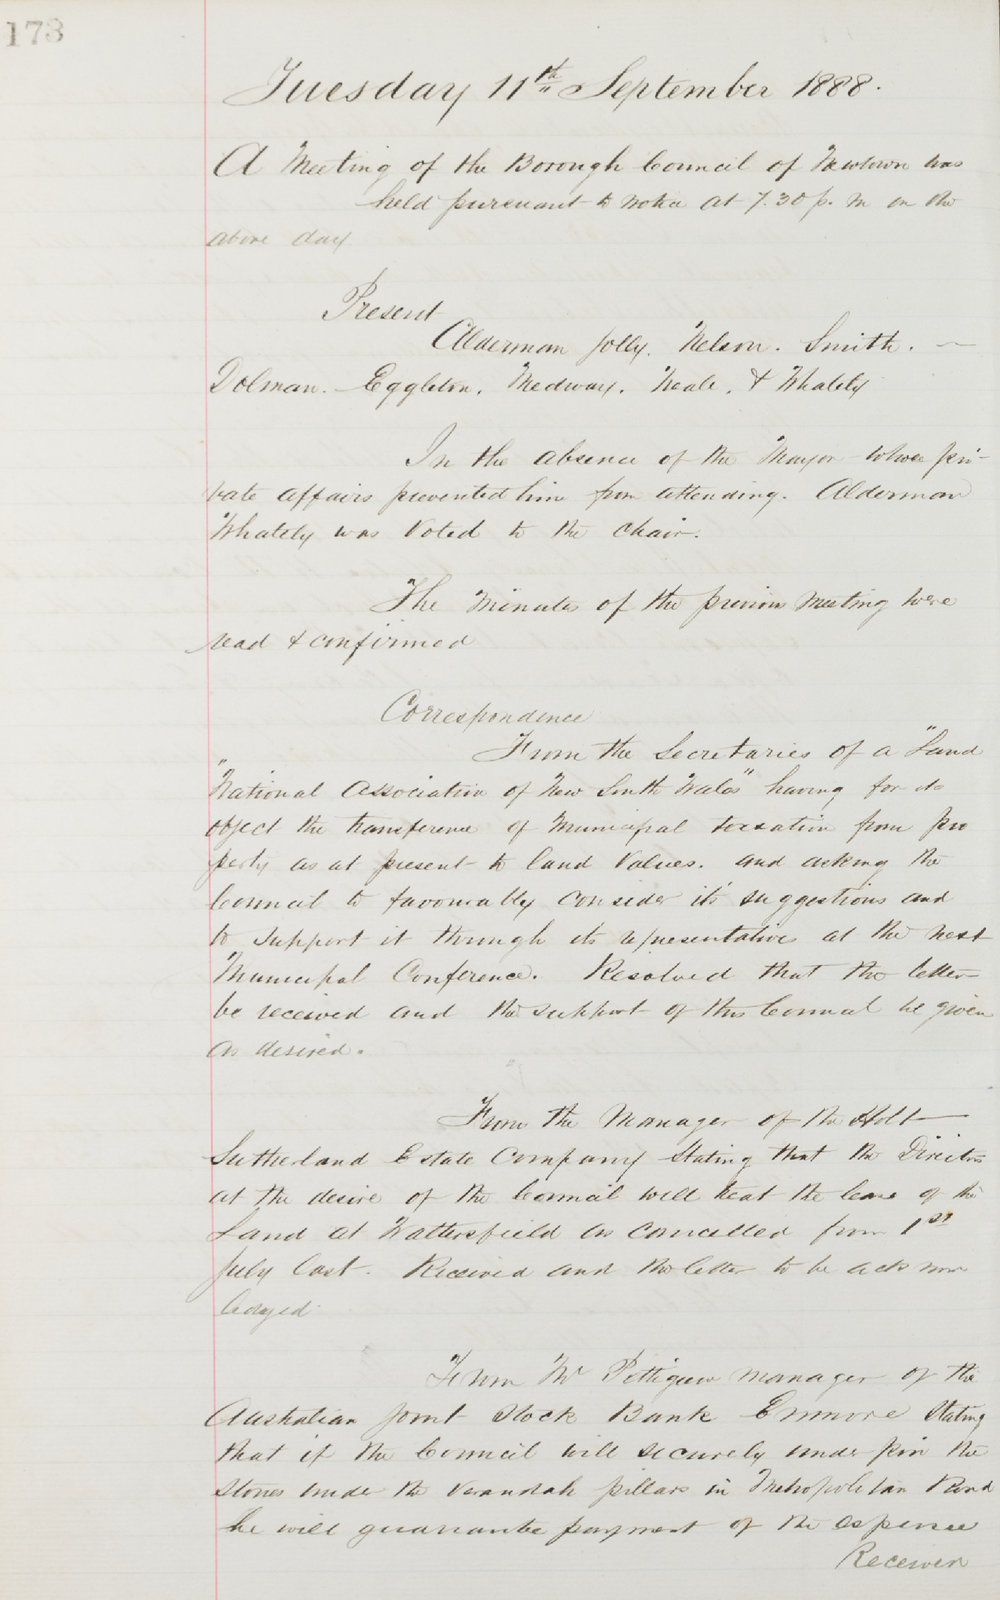 173
Tuesday 11th September 1888.
A Meeting of the Borough Council of Newtown was
held pursuant to notice at 7.30 p.m on the
above day
Present
Alderman Jolly. Nelson. Smith. —
Dolman. Eggleton. Medway. Neale. & Whately
In the absence of the Mayor whose pri-
vate affairs prevented him from attending. Alderman
Whately was voted to the chair.
The Minutes of the previous Meeting were
read & confirmed
Correspondence
From the Secretaries of a "Land
"National Association of New South Wales" having for its
object the transference of Municipal taxation from pro
perty as at present to land values. and asking the
Council to favourably consider it's suggestions and
to support it through its representatives at the next
Municipal Conference. Resolved that the letter
be received and the support of this Council be given
as desired.
From the Manager of the Holt
Sutherland Estate Company stating that the Directors
at the desire of the Council will treat the lease of the
Land at Wattersfield as cancelled from 1st
July last. Received and the letter to be acknow
ledged
From Mr Pettigrew manager of the
Australian Joint Stock Bank Enmore stating
that if the Council will securely under pin the
stones under the verandah pillars in Metropolitan Road
he will guarantee payment of the expense
Received